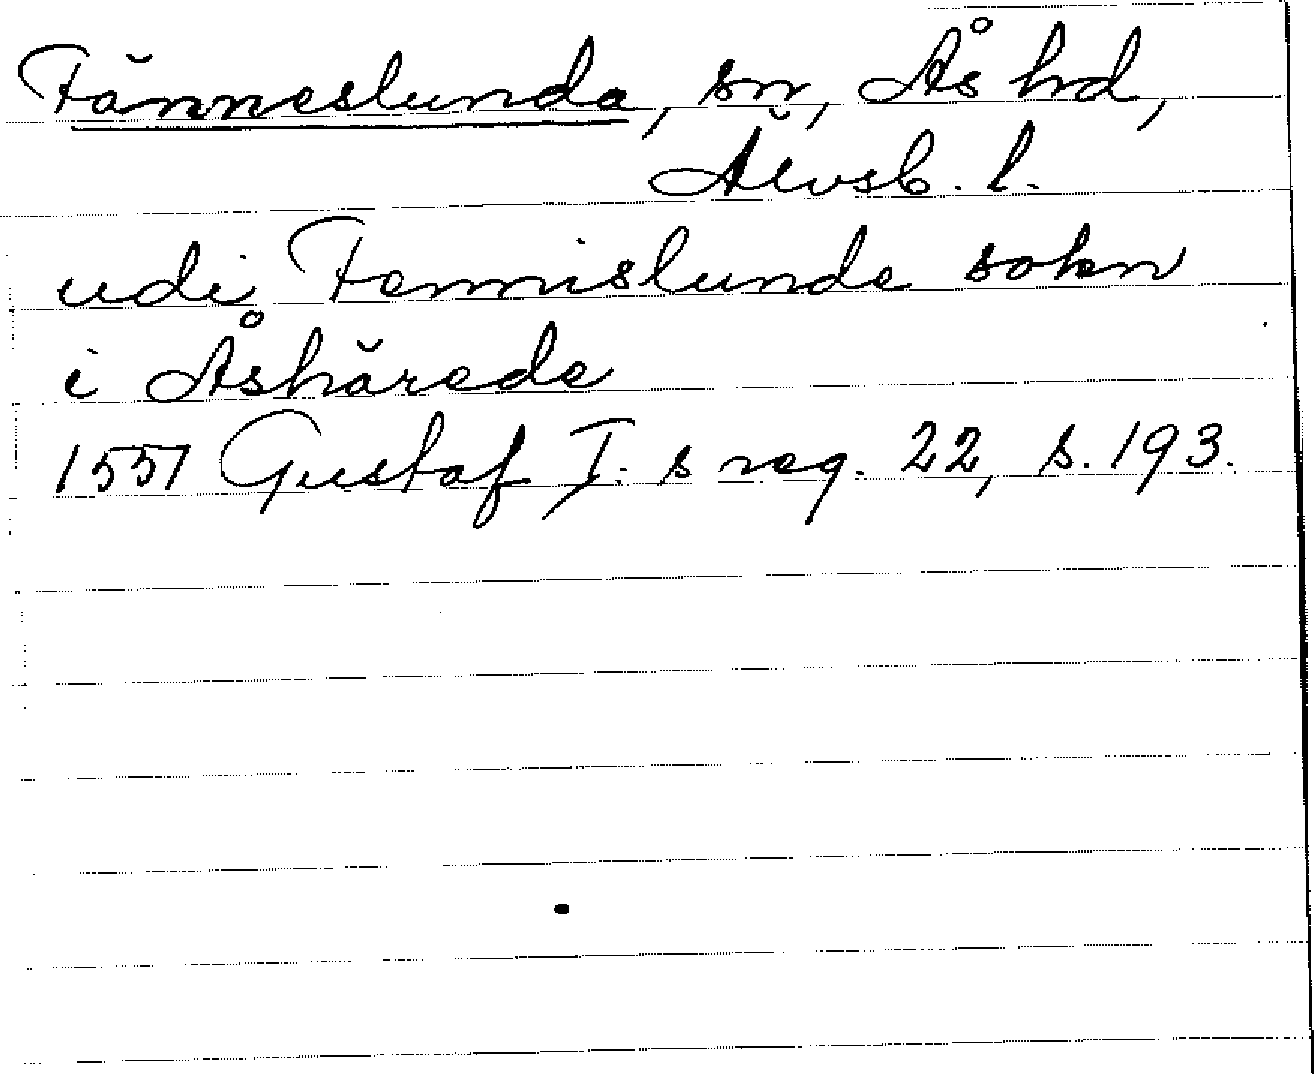 Fänneslunda, sn, Ås hd,
Älvsb. l.
udi Fennislunde sokn
i Åshärede
1551 Gustaf I. s reg. 22, s. 193.